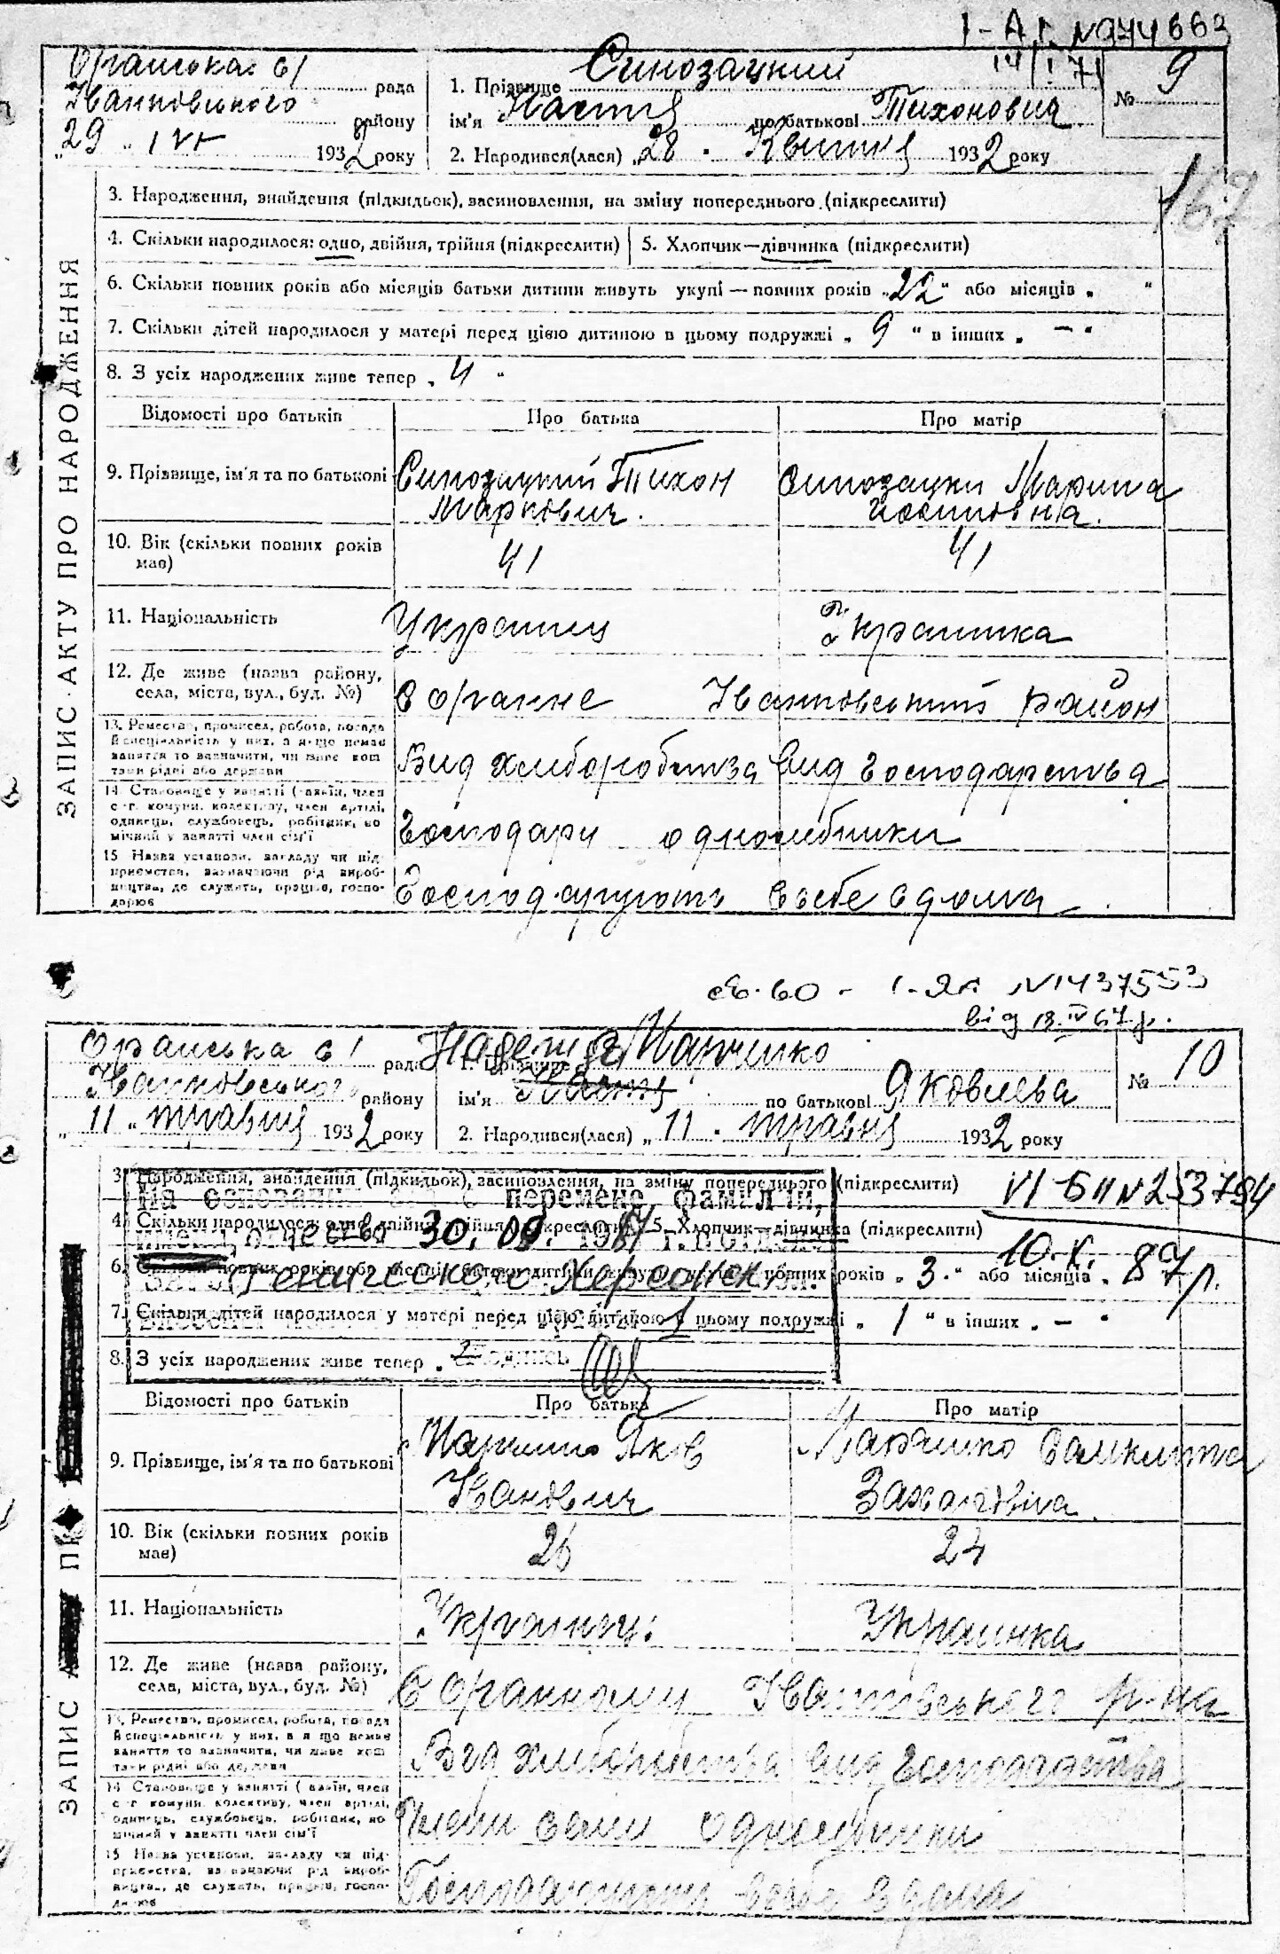 I-А.г. №974663
14/I 71
Органська с/ рада
Іванковського району
"29" IV 1932 року
1. Прізвище Синозацкий
ім'я Настя по батькові Тихоновна
2. Народився(лася) "28" Квитня 1932 року
№ 9
167
ЗАПИС АКТУ ПРО НАРОДЖЕННЯ
3. Народження, знайдення (підкидьок), засиновлення, на зміну попереднього (підкреслити)
4. Скільки народилося: одно, двійня, трійня (підкреслити) 5. Хлопчик—дівчинка (підкреслити)
6. Скільки повних років або місяців батьки дитини живуть укупі — повних років "22" або місяців " "
7. Скільки дітей народилося у матері перед цією дитиною в цьому подружжі " 9 " в інших " — "
8. З усіх народжених живе тепер " 4 "
Відомості про батьків Про батька Про матір
9. Прізвище, ім'я та по батькові Синозацкий Тихон Синозацки Марина
Маркович. Иосиповна.
10. Вік (скільки повних років має) 41 41
11. Національність Украинец Украинка
12. Де живе (назва району, села, міста, вул., буд. №) с Оранне Іванковський район
13. Ремество, промисел, робота, посада й спеціяльність у них, а якщо немає заняття то зазначити, чи живе кош тами рідні або держави
Вид хлиборобства вид господарства
14. Становище у занятті (хазяїн, член с.-г. комуни, колективу, член артілі, одинець, службовець, робітник, помічний у занятті член сім'ї
Господари одноосибники
15 Назва установи, закладу чи підприємства, зазначаючи рід виробництва, де служить, працює, господарює
Господарують в себе вдома
I-ЯЛ №1437553
від 13.IV 67 р.
Оранська с/ рада
Іванковського району
"11" травня 1932 року
1. Прізвище Надежда Марченко
ім'я Настя по батькові Яковлева
2. Народився(лася) "11" травня 1932 року
№ 10
3. Народження, знайдення (підкидьок), засиновлення, на зміну попереднього (підкреслити)
VI-БІІ №253794
На основании о перемене фамилии,
4. Скільки народилося: одно, двійня, трійня (підкреслити) 5. Хлопчик—дівчинка (підкреслити)
имени, отчество 30. 09. 1987 г.
10. X. 87 р.
6. Скільки повних років або місяців батьки дитини живуть укупі — повних років "3" або місяців " "
Генического Херсонск
7. Скільки дітей народилося у матері перед цією дитиною в цьому подружжі " 1 " в інших " — "
8. З усіх народжених живе тепер " 2
Подпись
Відомості про батьків Про батька Про матір
9. Прізвище, ім'я та по батькові Марченко Яков Марченко
Іванович Захаровна
10. Вік (скільки повних років має) 26 24
11. Національність Украинец. Украинка
12. Де живе (назва району, села, міста, вул., буд. №) с Оранному Іванковського р-на
13. Ремество, промисел, робота, посада й спеціяльність у них, а якщо немає заняття то зазначити, чи живе кош тами рідні або держави
Вид хлиборобства вид господарства
14 Становище у занятті (хазяїн, член с.-г. комуни, колективу, член артілі, одинець, службовець, робітник, помічний у занятті член сім'ї
Члени семи одноосибники
15 Назва установи, закладу чи підприємства, зазначаючи рід виробництва, де служить, працює, господарює
Господарюють в себе вдома
ЗАПИС